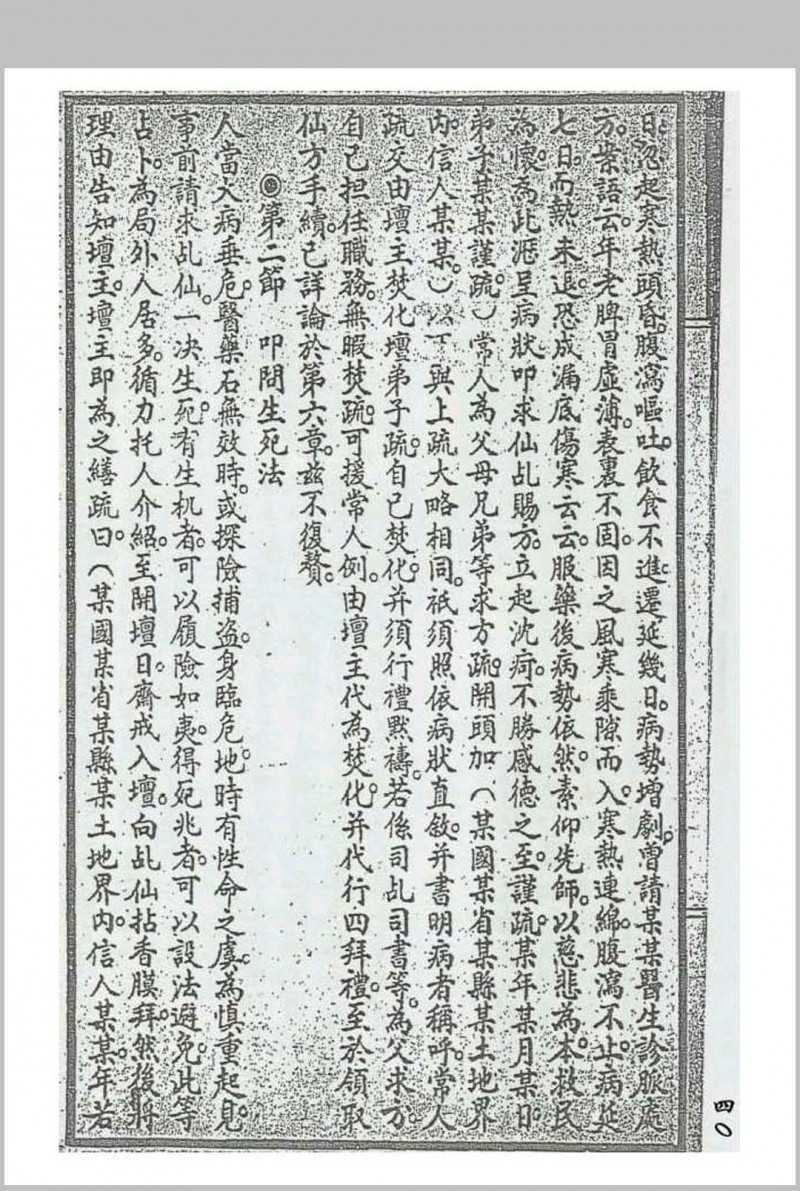 日。忽起寒熱頭昏。腹瀉嘔吐。飲食不進。遷延幾日。病勢增劇。曾請某某醫生診脈處
方。案語云。年老脾胃虛薄。表裏不固。因之風寒乘隙而入。寒熱連綿。腹瀉不止。病延
七日。而熱未退。恐成漏底傷寒云云。服藥後病勢依然。素仰先師。以慈悲為本。救民
為懷。為此瀝呈病狀。叩求仙乩賜方。立起沈疴。不勝感德之至。謹疏。某年某月某日。
弟子某某謹疏）常人為父母兄弟等求方。疏。開頭加（某國某省某縣某土地界
內。信人某某。）以下與上疏大略相同。祇須照依病狀直敘。并書明病者稱呼。常人
疏交由壇主焚化。壇弟子疏。自己焚化。并須行禮默禱。若係司乩司書等。為父求方。
自己担任職務。無暇焚疏。可援常人例。由壇主代為焚化。并代行四拜禮。至於領取
仙方手續。已詳論於第六章。茲不復贅。
◉第二節　叩問生死法
人當大病垂危。醫藥石無效時。或探險捕盜。身臨危地。時有性命之虞。為慎重起見。
事前請求乩仙。一决生死。有生机者。可以履險如夷。得死兆者。可以設法避免。此等
占卜。為局外人居多。循力托人介紹。至開壇日。齋戒入壇。向乩仙拈香膜拜。然後將
理由告知壇主。壇主即為之繕疏。曰。（某國某省某縣某土地界內。信人某某。年若
四〇